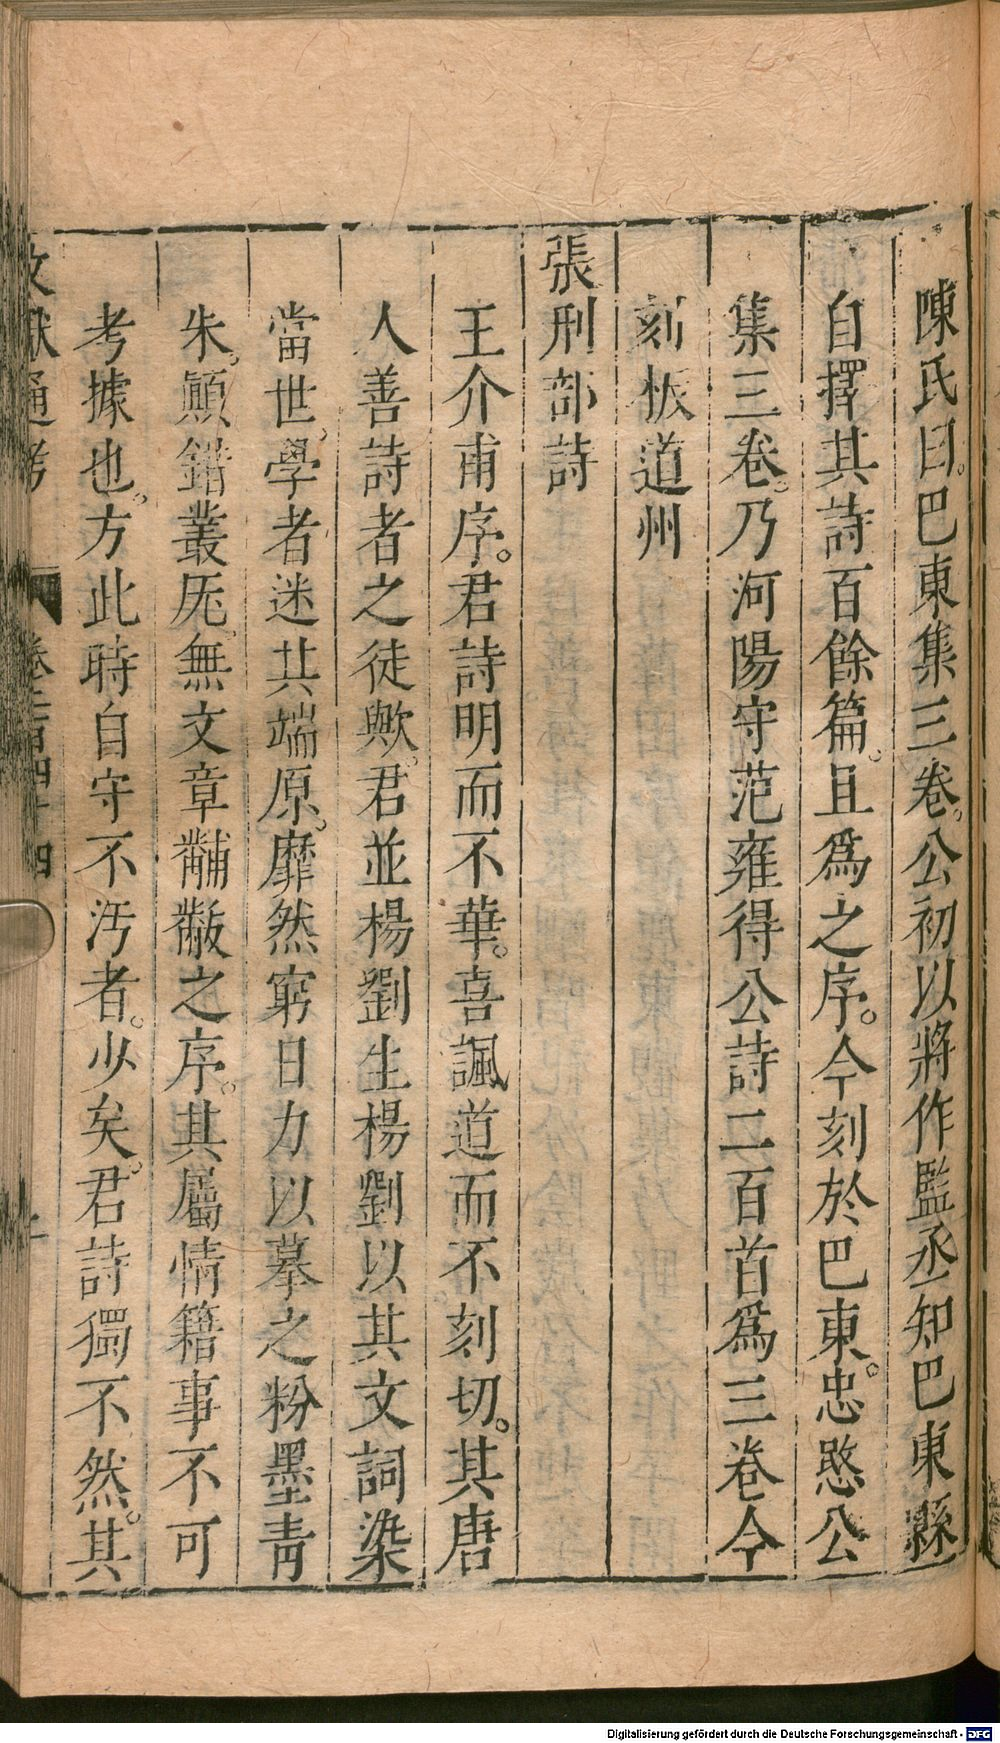 陳氏曰。巴東集三卷。公初以將作監丞知巴東縣
自擇其詩百餘篇。且爲之序。今刻於巴東。忠愍公
集三卷。乃河陽守范雍得公詩二百首爲三卷今
刻板道州
張刑部詩
王介甫序。君詩明而不華。喜諷道而不刻切。其唐
人善詩者之徒歟。君並楊劉生楊劉以其文詞染
當世。學者迷其端原。靡然窮日力以摹之粉墨青
朱。顛錯叢厖。無文章黼黻之序。其屬情籍事不可
考據也。方此時自守不汚者。少矣。君詩獨不然。其
文獻通考 卷二百四十四
Digitalisierung gefördert durch die Deutsche Forschungsgemeinschaft - DFG